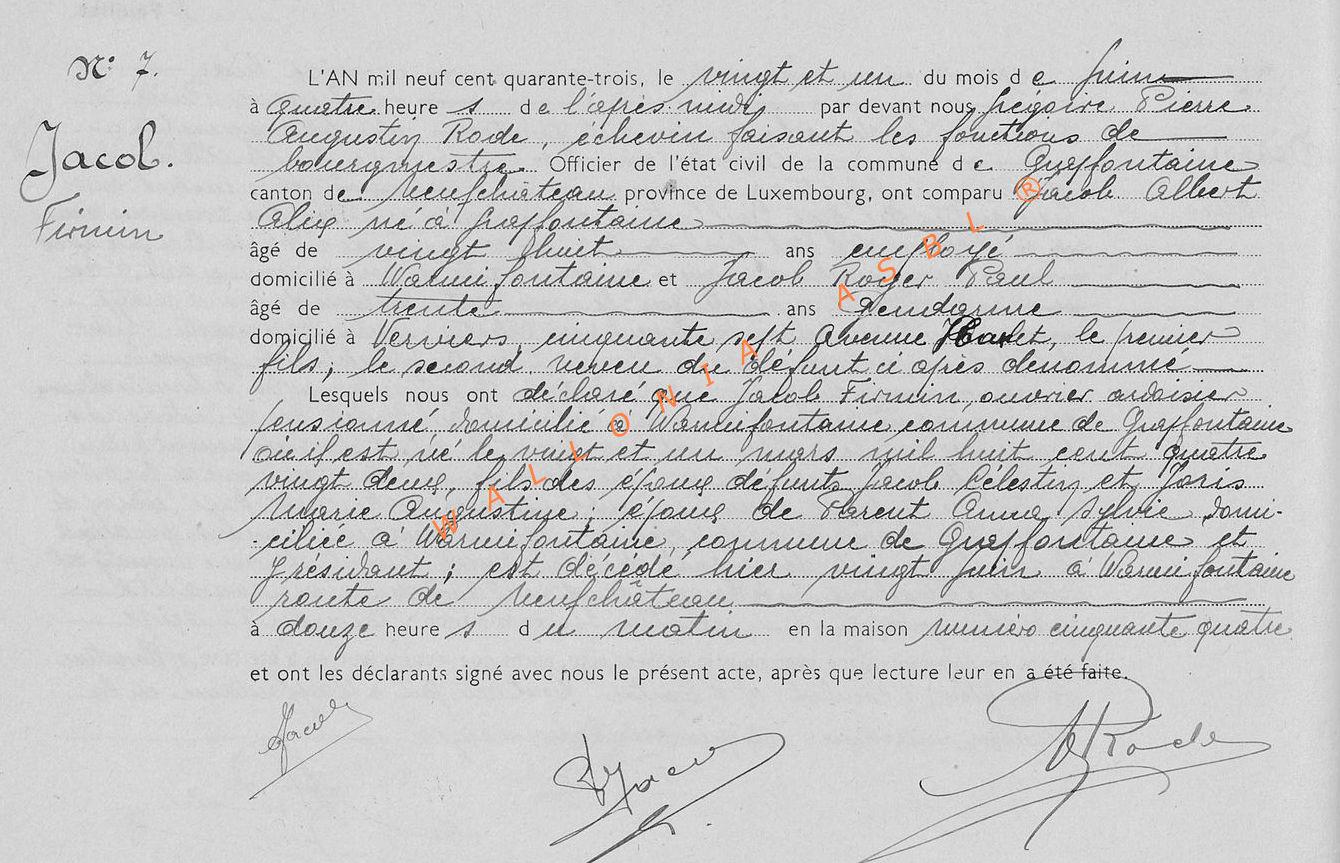 N° 7.
Jacob.
Firmin
L'AN mil neuf cent quarante-trois, le vingt et un du mois de juin
à quatre heures de l'après-midi par devant nous Grégoire Pierre
Augustin Rode, échevin faisant les fonctions de
bourgmestre Officier de l'état civil de la commune de Grapfontaine
canton de Neufchâteau province de Luxembourg, ont comparu Jacob Albert
né à Grapfontaine
âgé de vingt huit ans employé
domicilié à Warmifontaine et Jacob Roger Paul
âgé de trente ans Gendarme
domicilié à Verviers, cinquante sept Avenue, le premier
fils, le second neveu du défunt ci après dénommé
Lesquels nous ont déclaré que Jacob Firmin, ouvrier ardoisier
pensionné, domicilié à Warmifontaine commune de Grapfontaine
où il est né le vingt et un mars mil huit cent quatre
vingt deux, fils des époux défunts Jacob Célestin et Joris
Marie Augustine; époux de Parent Anna Sylvie domi-
-ciliée à Warmifontaine, commune de Grapfontaine et
y résidant; est décédé hier vingt juin à Warmifontaine
route de Neufchâteau
à douze heures du matin en la maison numéro cinquante quatre
et ont les déclarants signé avec nous le présent acte, après que lecture leur en a été faite.
Jacob
Jacob
Rode
WALLONIA ASBL ®